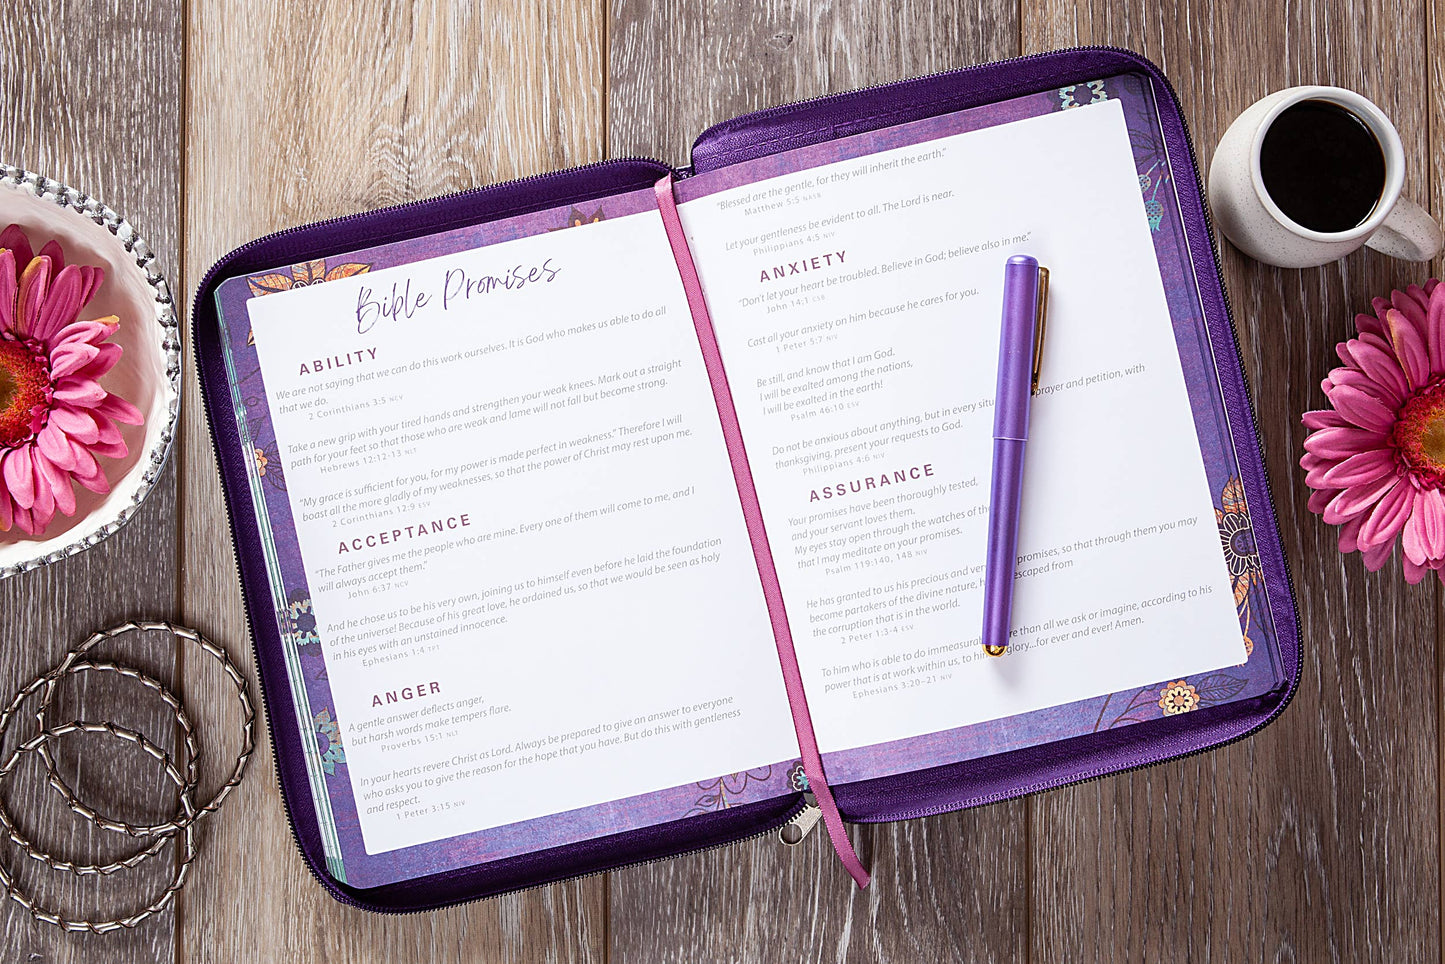 Bible Promises
ABILITY
We are not saying that we can do this work ourselves. It is God who makes us able to do all
that we do.
2 Corinthians 3:5 NCV
Take a new grip with your tired hands and strengthen your weak knees. Mark out a straight
path for your feet so that those who are weak and lame will not fall but become strong.
Hebrews 12:12-13 NLT
"My grace is sufficient for you, for my power is made perfect in weakness." Therefore I will
boast all the more gladly of my weaknesses, so that the power of Christ may rest upon me.
2 Corinthians 12:9 ESV
ACCEPTANCE
"The Father gives me the people who are mine. Every one of them will come to me, and I
will always accept them."
John 6:37 NCV
And he chose us to be his very own, joining us to himself even before he laid the foundation
of the universe! Because of his great love, he ordained us, so that we would be seen as holy
in his eyes with an unstained innocence.
Ephesians 1:4 TPT
ANGER
A gentle answer deflects anger,
but harsh words make tempers flare.
Proverbs 15:1 NLT
In your hearts revere Christ as Lord. Always be prepared to give an answer to everyone
who asks you to give the reason for the hope that you have. But do this with gentleness
and respect.
1 Peter 3:15 NIV
"Blessed are the gentle, for they will inherit the earth."
Matthew 5:5 NASB
Let your gentleness be evident to all. The Lord is near.
Philippians 4:5 NIV
ANXIETY
"Don't let your heart be troubled. Believe in God; believe also in me."
John 14:1 CSB
Cast all your anxiety on him because he cares for you.
1 Peter 5:7 NIV
Be still, and know that I am God.
I will be exalted among the nations,
I will be exalted in the earth!
Psalm 46:10 ESV
Do not be anxious about anything, but in every prayer and petition, with
thanksgiving, present your requests to God.
Philippians 4:6 NIV
ASSURANCE
Your promises have been thoroughly tested,
and your servant loves them.
My eyes stay open through the watches of the
that I may meditate on your promises.
Psalm 119:140, 148 NIV
He has granted to us his precious and promises, so that through them you may
become partakers of the divine nature, escaped from
the corruption that is in the world.
2 Peter 1:3-4 ESV
To him who is able to do than all we ask or imagine, according to his
power that is at work within us, to glory...for ever and ever! Amen.
Ephesians 3:20-21 NIV